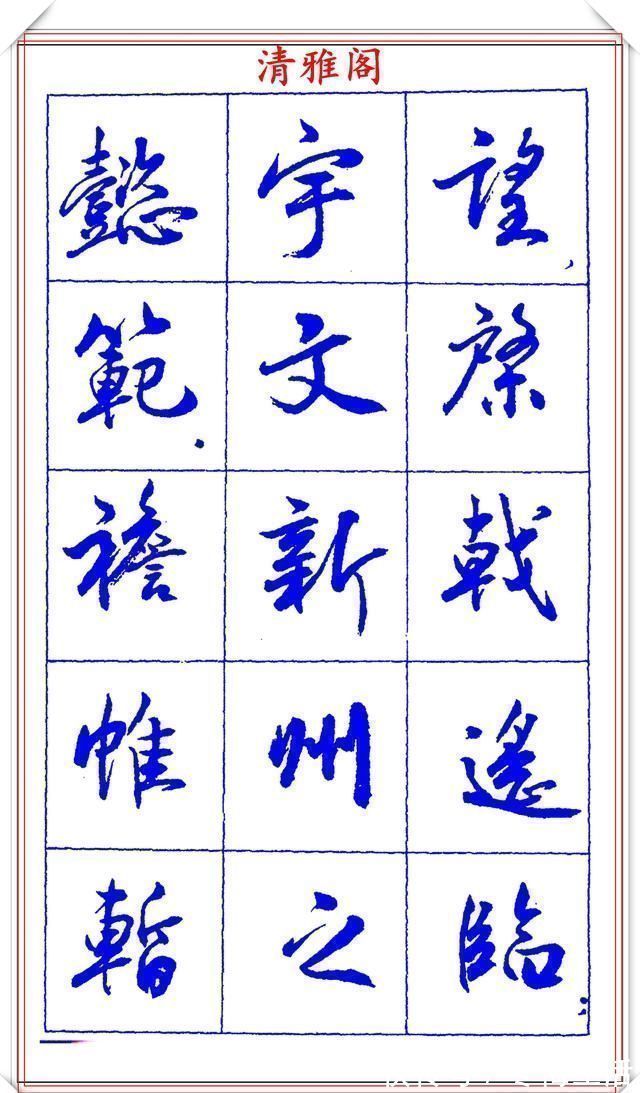 清雅阁
望，棨戟遙臨；
宇文新州之
懿範，襜帷暫